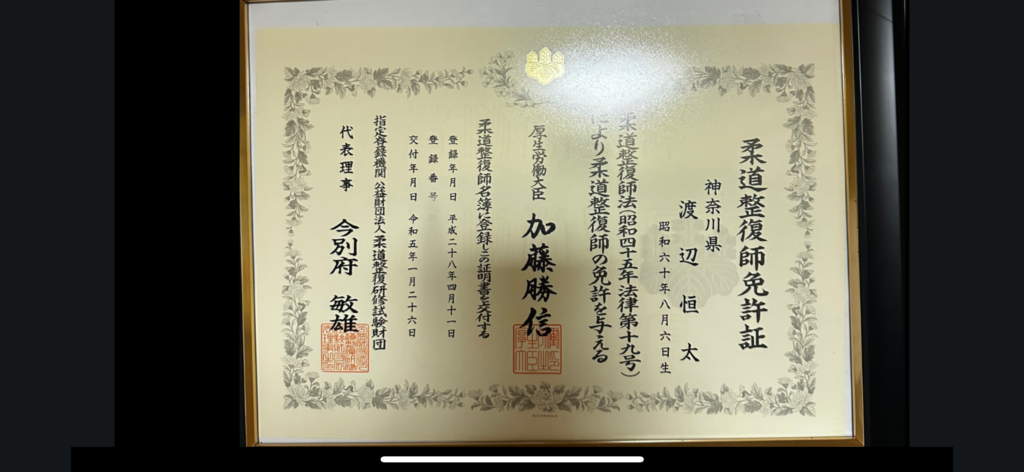 柔道整復師免許証
神奈川県
渡辺恒太
昭和六十年八月六日生
柔道整復師法(昭和四十五年法律第十九号)
により柔道整復師の免許を与える
厚生労働大臣 加藤勝信
柔道整復師名簿に登録しこの証明書を交付する
登録年月日 平成二十八年四月十一日
登録番号
交付年月日 令和五年一月二十六日
指定登録機関 公益財団法人 柔道整復研修試験財団
代表理事 今別府敏雄